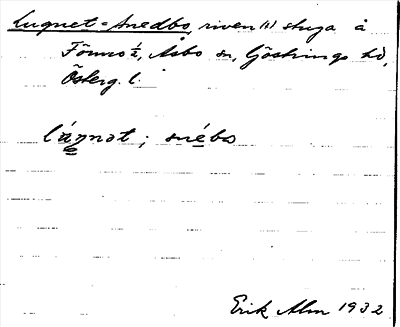 Lugnet = Snedbo, riven (1) stuga å
Tömro ½, Asbo sn, Göstrings hd,
Österg. l.
láŋnət ; snébo
Erik Alm 1932